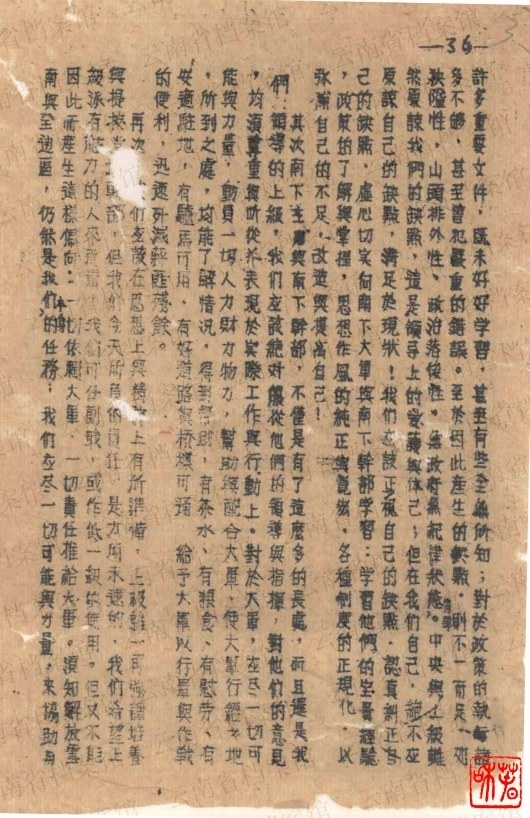 —36—
許多重要文件，既未好好学習，甚至有些全無所知；對於政策的執行
多不够，甚至曾犯嚴重的錯誤。至於因此産生的缺點，則不一而足，如
狹隘性，山頭排外性，政治落後性，無政府無紀律狀態。中央與上級雖
然原諒我們的缺點，這是領导上的愛護與体己；但在我們自己，絶不应
原諒自己的缺點，滿足於現狀！我們应該正視自己的缺點，認真糾正自
己的缺點，虛心切实向南下大軍與南下幹部学習：学習他們的宝貴經驗
，政策的了解與掌握，思想作風的純正與寬宏，各種制度的正規化，以
弥補自己的不足，改造與提高自己！
其次南下主力與南下幹部，不僅是有了這麽多的長處，而且還是我
們領導的上級，我們应該絶对服從他們的領導與指揮，對他們的意見
，均須尊重與听從并表現於实際工作與行動上。對於大軍，应尽一切可
能與力量，動員一切人力財力物力，幫助與配合大軍，使大軍行經之地
，所到之處，均能了解情况，得到幫助，有茶水、有粮食、有慰劳、有
安適駐地，有騾馬可用，有好道路與桥樑可通，給予大軍以行軍與作戰
的便利，迅速歼滅蔣匪残餘。
再次，我們应該在思想上與精神上有所準備，上級雖一再強調培養
與提拔本地幹部，但我們今天所負的責任，是力所未逮的，我們希望上
級派有能力的人來 我們可任副職，或作低一級的使用。但又不能
因此而産生這樣偏向：一切依賴大軍，一切責任推給大軍。須知解放雲
南與全边區，仍然是我們本身的任務；我們应尽一切可能與力量，來協助